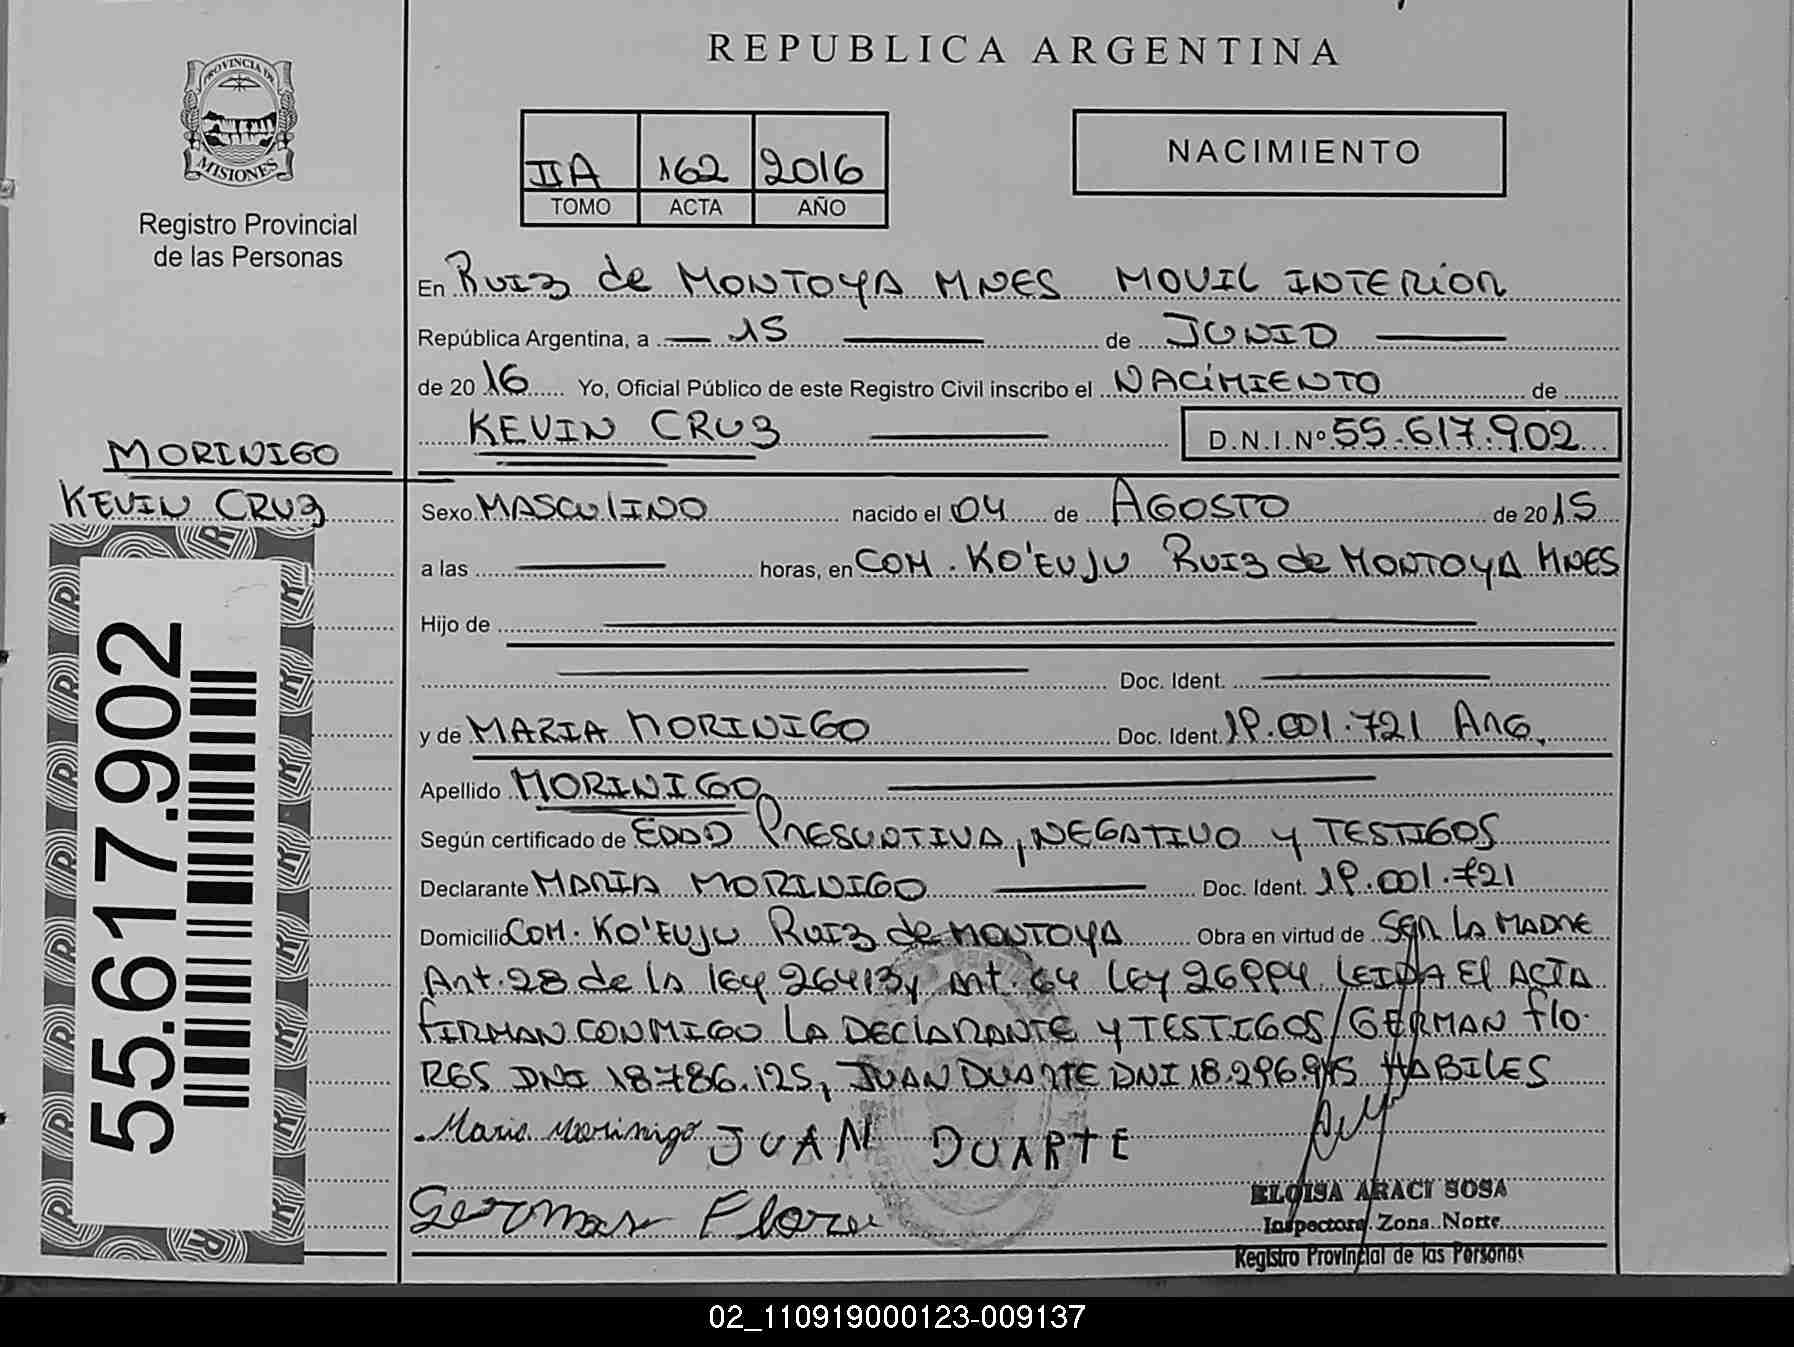 REPUBLICA ARGENTINA
PROVINCIA DE
MISIONES
Registro Provincial
de las Personas
IIA 162 2016
TOMO ACTA AÑO
NACIMIENTO
En RUIZ de MONTOYA MNES MOVIL INTERIOR
República Argentina, a 15 de JUNIO
de 2016 Yo, Oficial Público de este Registro Civil inscribo el NACIMIENTO de
KEVIN CRUZ D.N.I.Nº 55.617.902
MORINIGO
KEVIN CRUZ
55.617.902
Sexo MASCULINO nacido el 04 de AGOSTO de 2015
a las horas, en COM. KO'EUJU RUIZ de MONTOYA MNES
Hijo de
Doc. Ident.
y de MARIA MORINIGO Doc. Ident. 19.001.721 ARG.
Apellido MORINIGO
Según certificado de EDAD PRESUNTIVA, NEGATIVO Y TESTIGOS
Declarante MARIA MORINIGO Doc. Ident. 19.001.721
Domicilio COM. KO'EUJU RUIZ de MONTOYA Obra en virtud de SGR LA MADRE
Art. 28 de la ley 26413 y Art. 64 LEY 26994 LEIDA El ACTA
FIRMAN CONMIGO LA DECLARANTE Y TESTIGOS/GERMAN FLO-
RES DNI 18.786.125, JUAN DUARTE DNI 18.296.945 HABILES
Maria Morinigo JUAN DUARTE
German Flore
ELOISA ARACI SOSA
Inspectora Zona Norte
Registro Provincial de las Personas
02_110919000123-009137